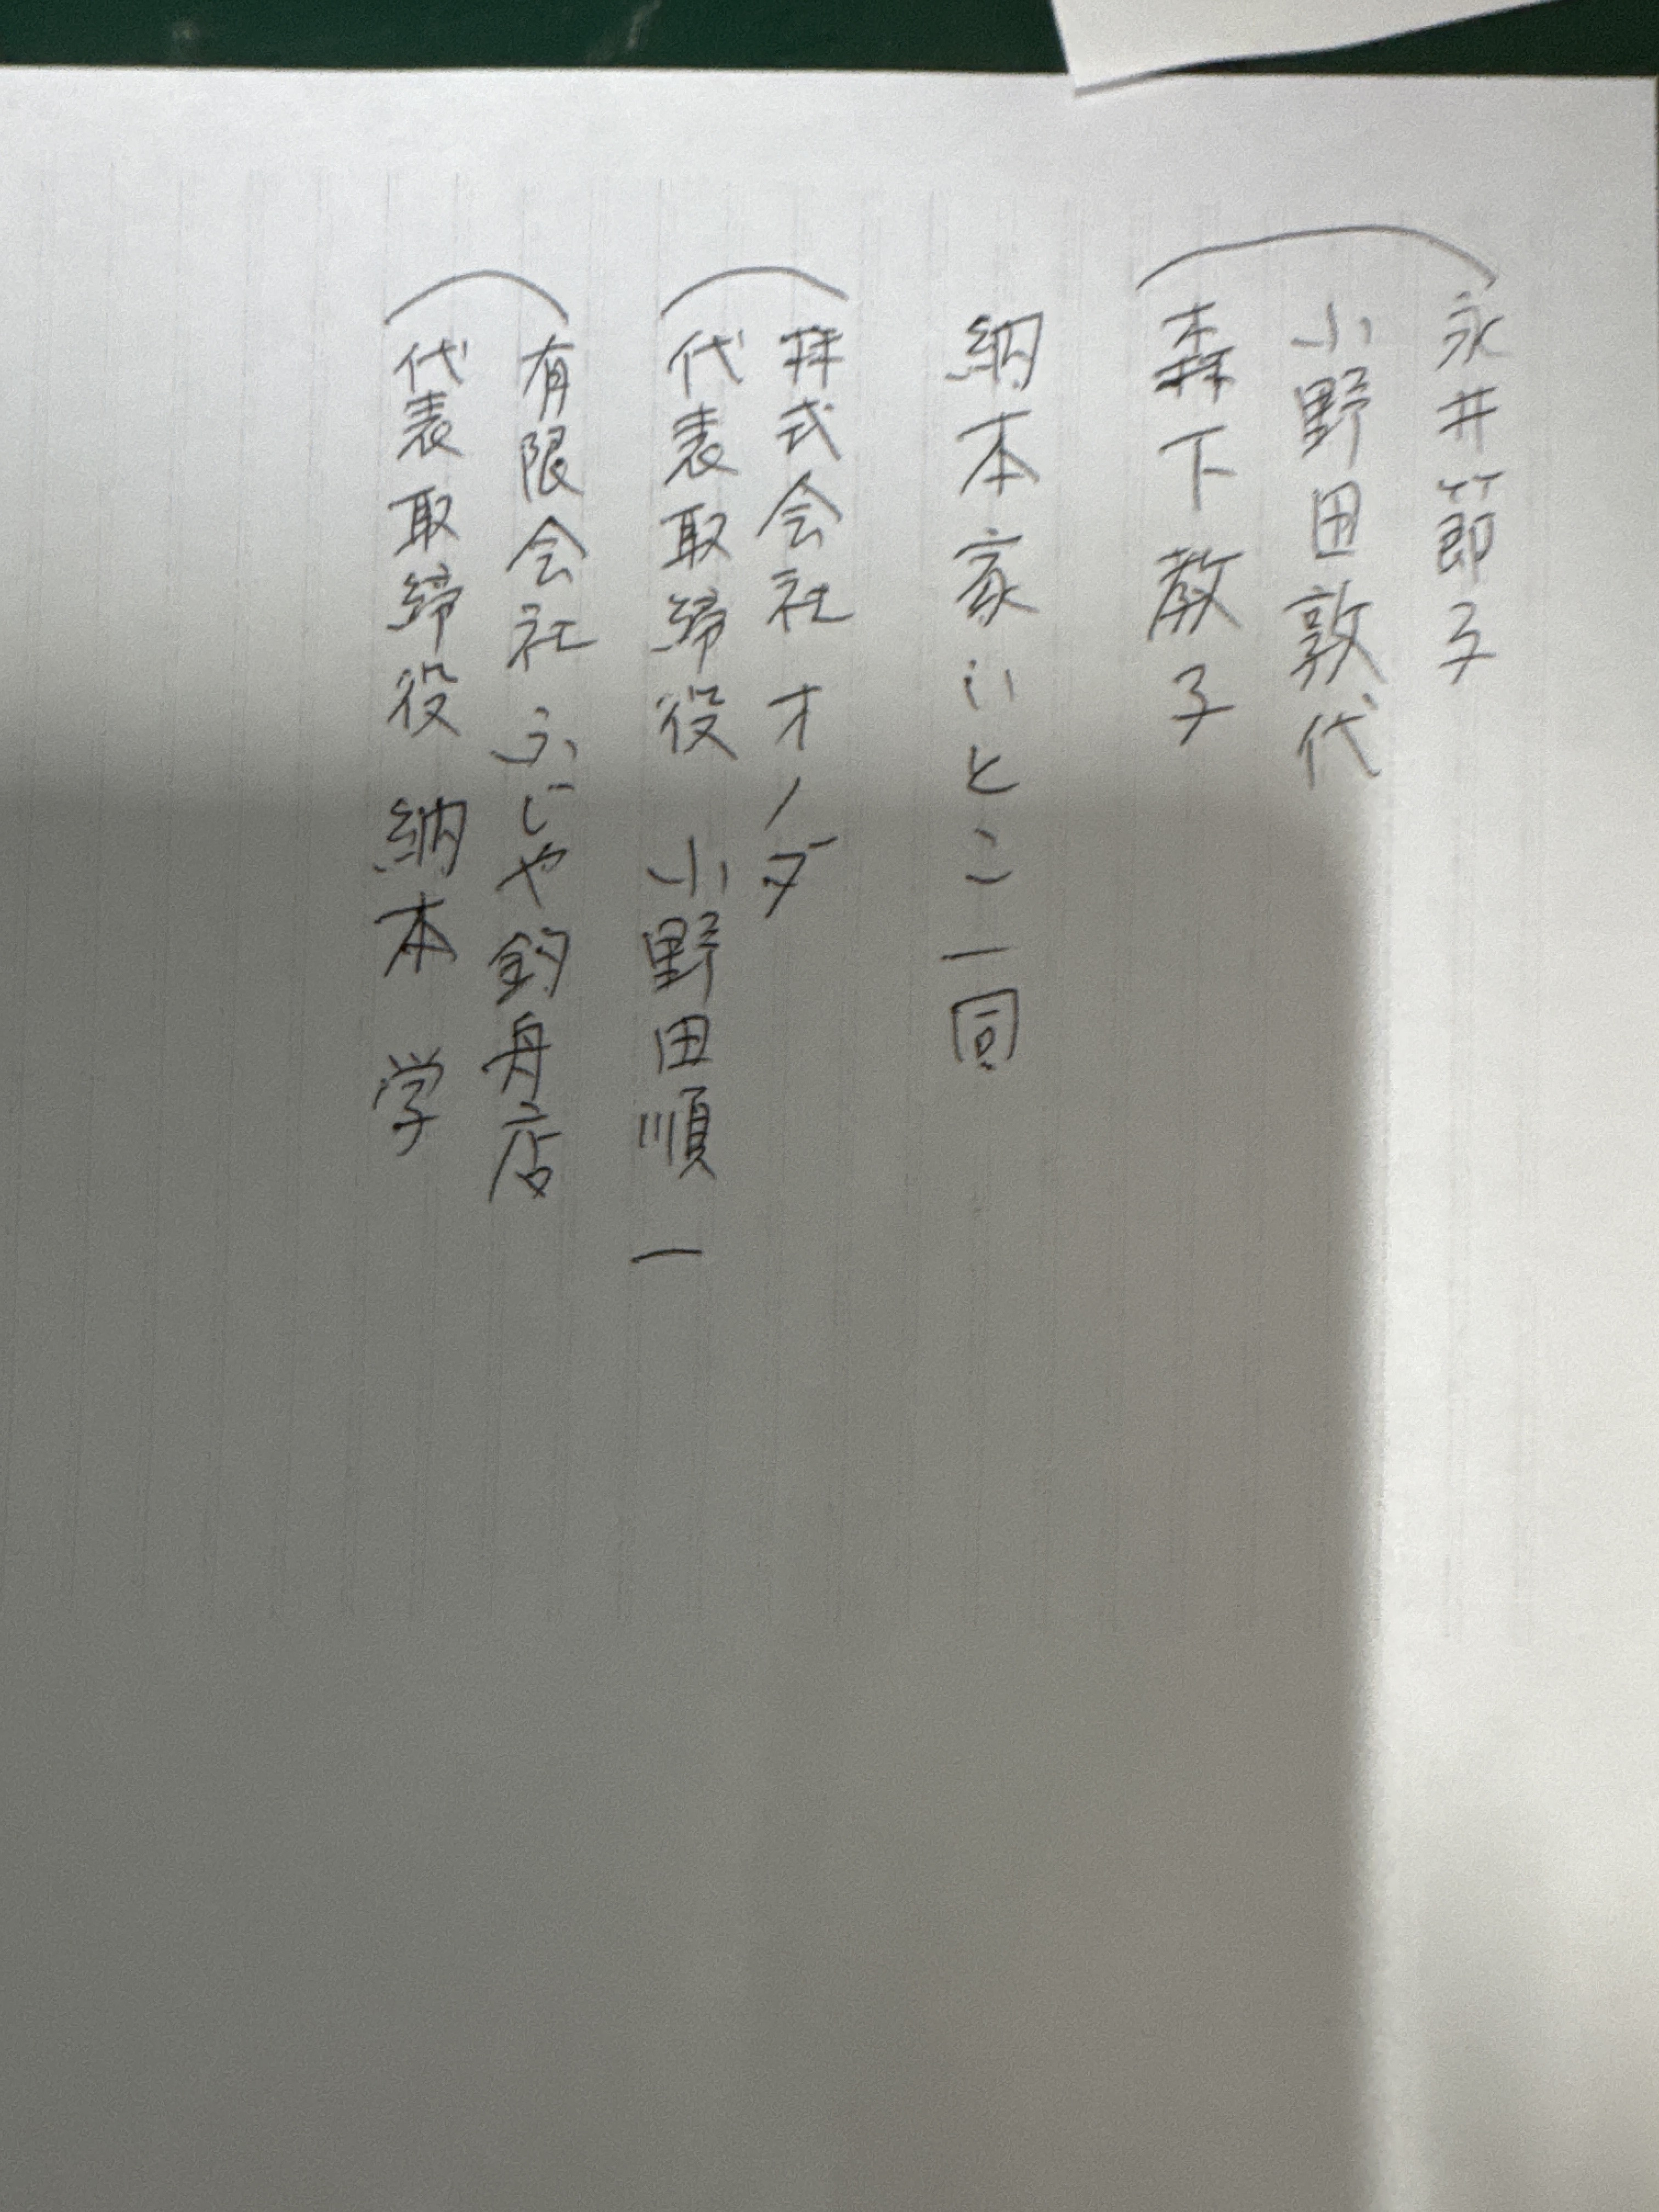 永井節子
小野田敦代
森下教子
納本家いとこ一同
株式会社オノダ
代表取締役 小野田順一
有限会社ふじや釣舟店
代表取締役 納本 学